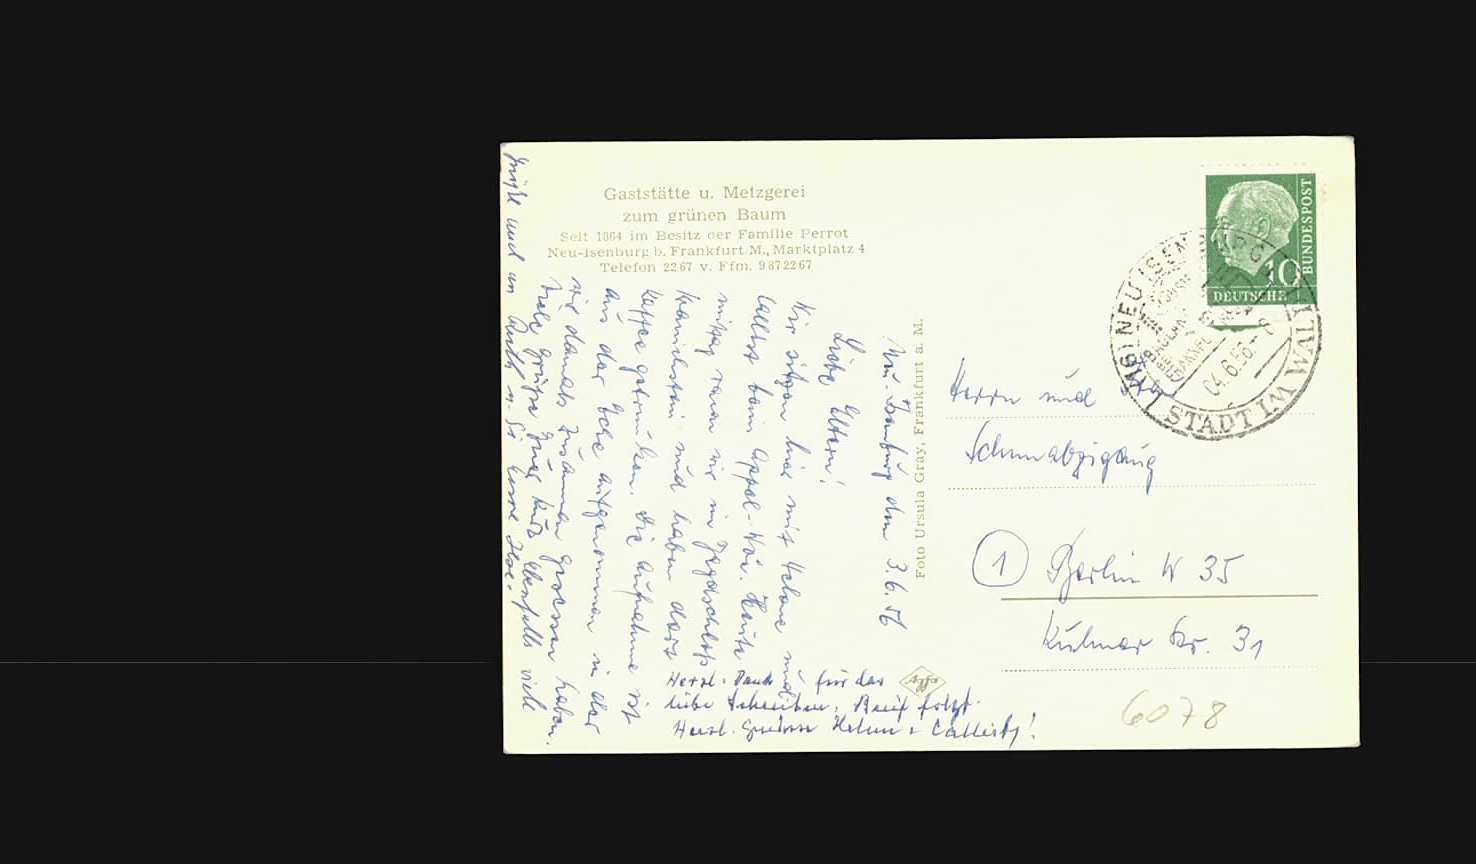 Gaststätte u. Metzgerei
zum grünen Baum
Seit 1864 im Besitz der Familie Perrot
Neu-Isenburg b. Frankfurt M., Marktplatz 4
Telefon 2267 v. Ffm. 9872267
Neu-Isenburg den 3.6.56
Liebe Eltern!
Wir sitzen hier mit Helene und
Callist beim Appel-Woi. Heute
mittag waren wir im Jagdschloss
Kranichstein und haben dort
Kaffee getrunken. Die Aufnahme ist
aus der Ecke aufgenommen in der
wir damals zusammen gesessen haben.
Viele Grüsse Euer Ebenfalls viele
Grüße und an
Herzl. Dank für das
liebe Schreiben, Brief folgt.
Herzl. Grüsse Helen u. Callist!
Foto Ursula Gray, Frankfurt a. M.
Agfa
DEUTSCHE
BUNDESPOST
10
NEU ISENBURG
STADT IM WALD
04.6.56.
Herrn und
1 Berlin W 35
Kulmer Str. 31
6078